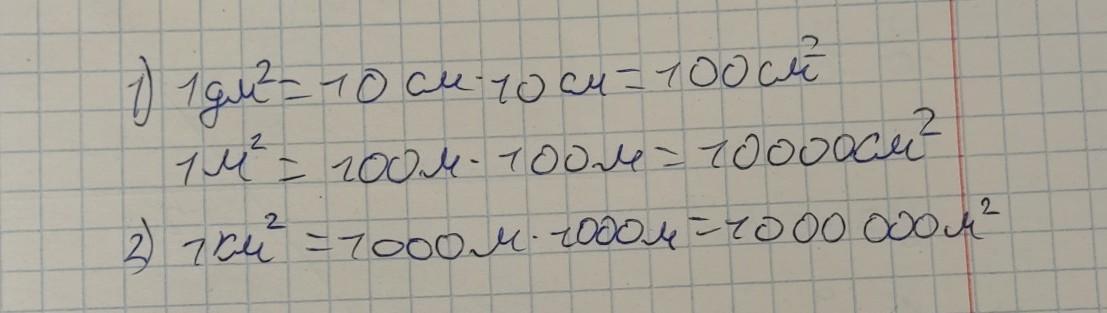 1) 1дм² = 10 см · 10 см = 100 см²
1м² = 100м · 100м = 10000см²
2) 1км² = 1000м · 1000м = 1000 000м²